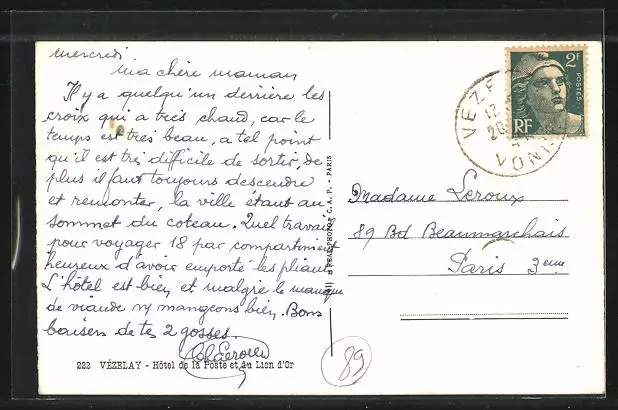 mercredi
ma chère maman
Il y a quelqu'un derrière les
croix qui a très chaud, car le
temps est très beau, a tel point
qu'il est très difficile de sortir, de
plus il faut toujours descendre
et remonter, la ville étant au
sommet du coteau. Quel travail
pour voyager 18 par compartiment
heureux d'avoir emporté les pliants
L'hôtel est bien et malgré le manque
de viande n/ mangeons bien. Bons
baisers de tes 2 gosses.
222 VÉZELAY - Hôtel de la Poste et du Lion d'Or
C. A. P. - PARIS
VEZE
2F
POSTES
RF
Madame Leroux
89 Bd Beaumarchais
Paris 3eme
89